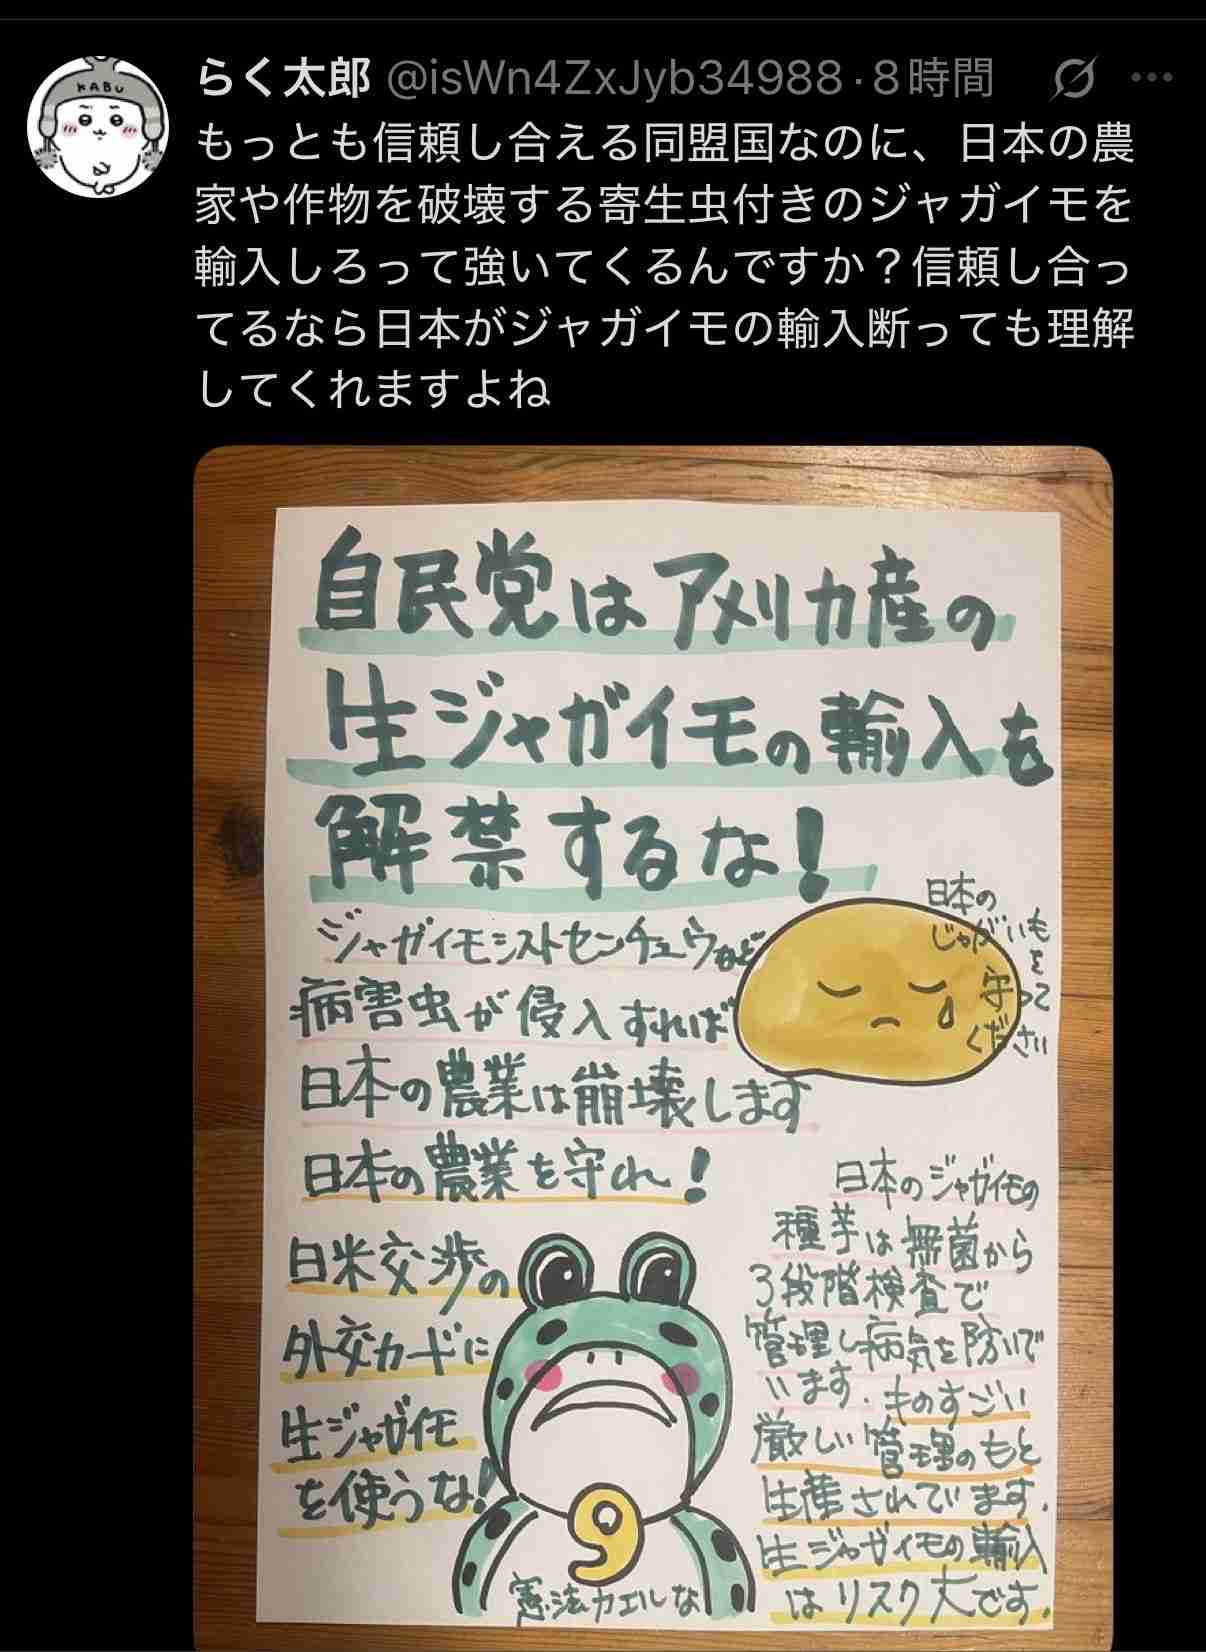 KABU
らく太郎 @isWn4ZxJyb34988·8時間
もっとも信頼し合える同盟国なのに、日本の農
家や作物を破壊する寄生虫付きのジャガイモを
輸入しろって強いてくるんですか？信頼し合っ
てるなら日本がジャガイモの輸入断っても理解
してくれますよね
自民党はアメリカ産の
生ジャガイモの輸入を
解禁するな!
ジャガイモシストセンチュウなど
病害虫が侵入すれば
日本の農業は崩壊します
日本の農業を守れ!
日本の
じゃがいも
を
守って
ください
日米交渉の
外交カードに
生ジャガイモ
を使うな!
日本のジャガイモの
種芋は無菌から
3段階検査で
管理し病気を防いで
います.ものすごい
厳しい管理のもと
生産されています.
生ジャガイモの輸入
はリスク大です.
9
憲法カエルな